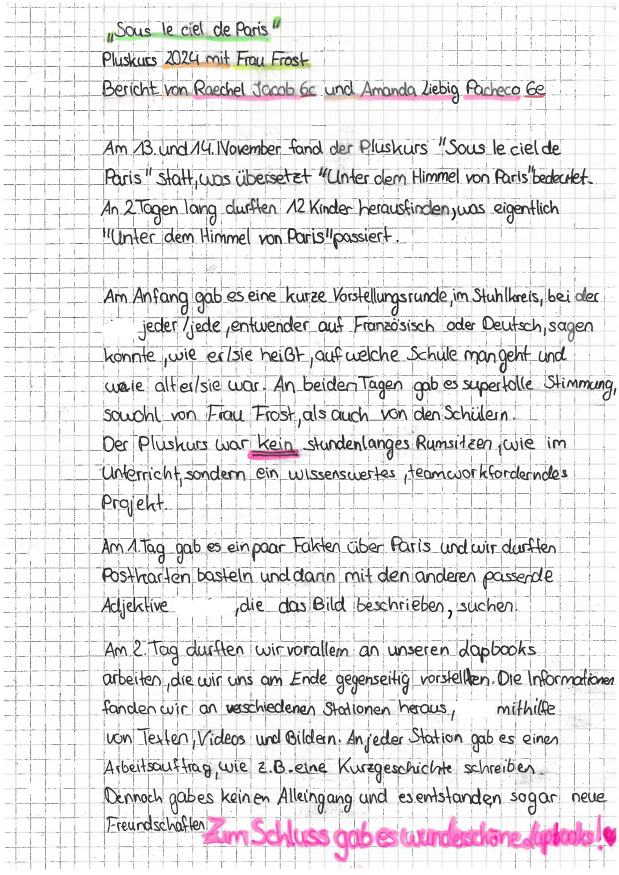 „Sous le ciel de Paris"
Pluskurs 2024 mit Frau Frost
Bericht von Raechel Jacob 6c und Amanda Liebig Pacheco 6e
Am 13. und 14. November fand der Pluskurs "Sous le ciel de
Paris" statt, was übersetzt "Unter dem Himmel von Paris" bedeutet.
An 2 Tagen lang durften 12 Kinder herausfinden, was eigentlich
"Unter dem Himmel von Paris" passiert.
Am Anfang gab es eine kurze Vorstellungsrunde, im Stuhlkreis, bei der
jeder/jede, entwender auf Französisch oder Deutsch, sagen
konnte, wie er/sie heißt, auf welche Schule man geht und
wie alt er/sie war. An beiden Tagen gab es supertolle Stimmung,
sowohl von Frau Frost, als auch von den Schülern.
Der Pluskurs war kein stundenlanges Rumsitzen, wie im
Unterricht, sondern ein wissenswertes, teamworkforderndes
Projekt.
Am 1. Tag gab es ein paar Fakten über Paris und wir durften
Postkarten basteln und dann mit den anderen passende
Adjektive , die das Bild beschrieben, suchen.
Am 2. Tag durften wir vorallem an unseren Lapbooks
arbeiten, die wir uns am Ende gegenseitig vorstellten. Die Informationen
fanden wir an verschiedenen Stationen heraus, mithilfe
von Texten, Videos und Bildern. An jeder Station gab es einen
Arbeitsauftrag, wie z.B. eine Kurzgeschichte schreiben.
Dennoch gab es keinen Alleingang und es entstanden sogar neue
Freundschaften. Zum Schluss gab es wunderschöne Lapbooks!♥